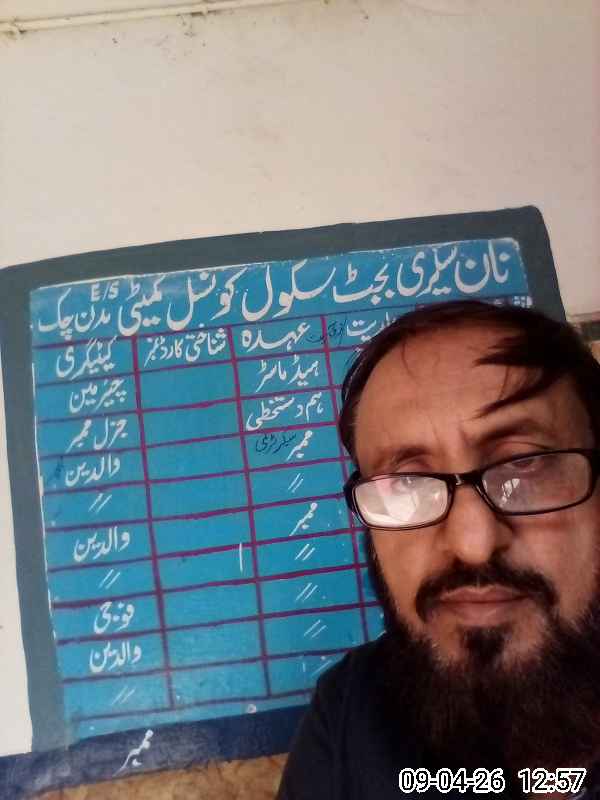 نان سیلری بجٹ سکول کونسل کمیٹی E/S مدن چک
عہدہ شناختی کارڈ نمبر کیٹیگری
ہیڈ ماسٹر چیئرمین
ہم دستخطی جنرل ممبر
ممبر سیکرٹری والدین
〃 〃
ممبر والدین
〃 〃
〃 فوجی
〃 والدین
〃 〃
ممبر
09-04-26 12:57